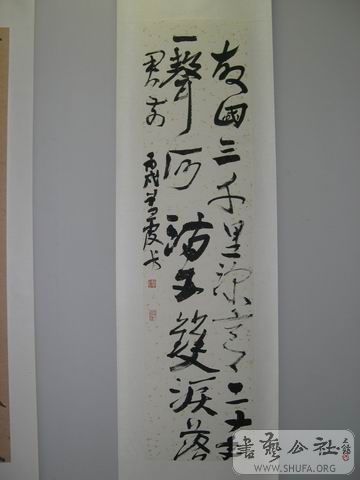 故國三千里深宮二十年
一聲何满子雙淚落
君前
丙戌
書藝公社
WWW.SHUFA.ORG